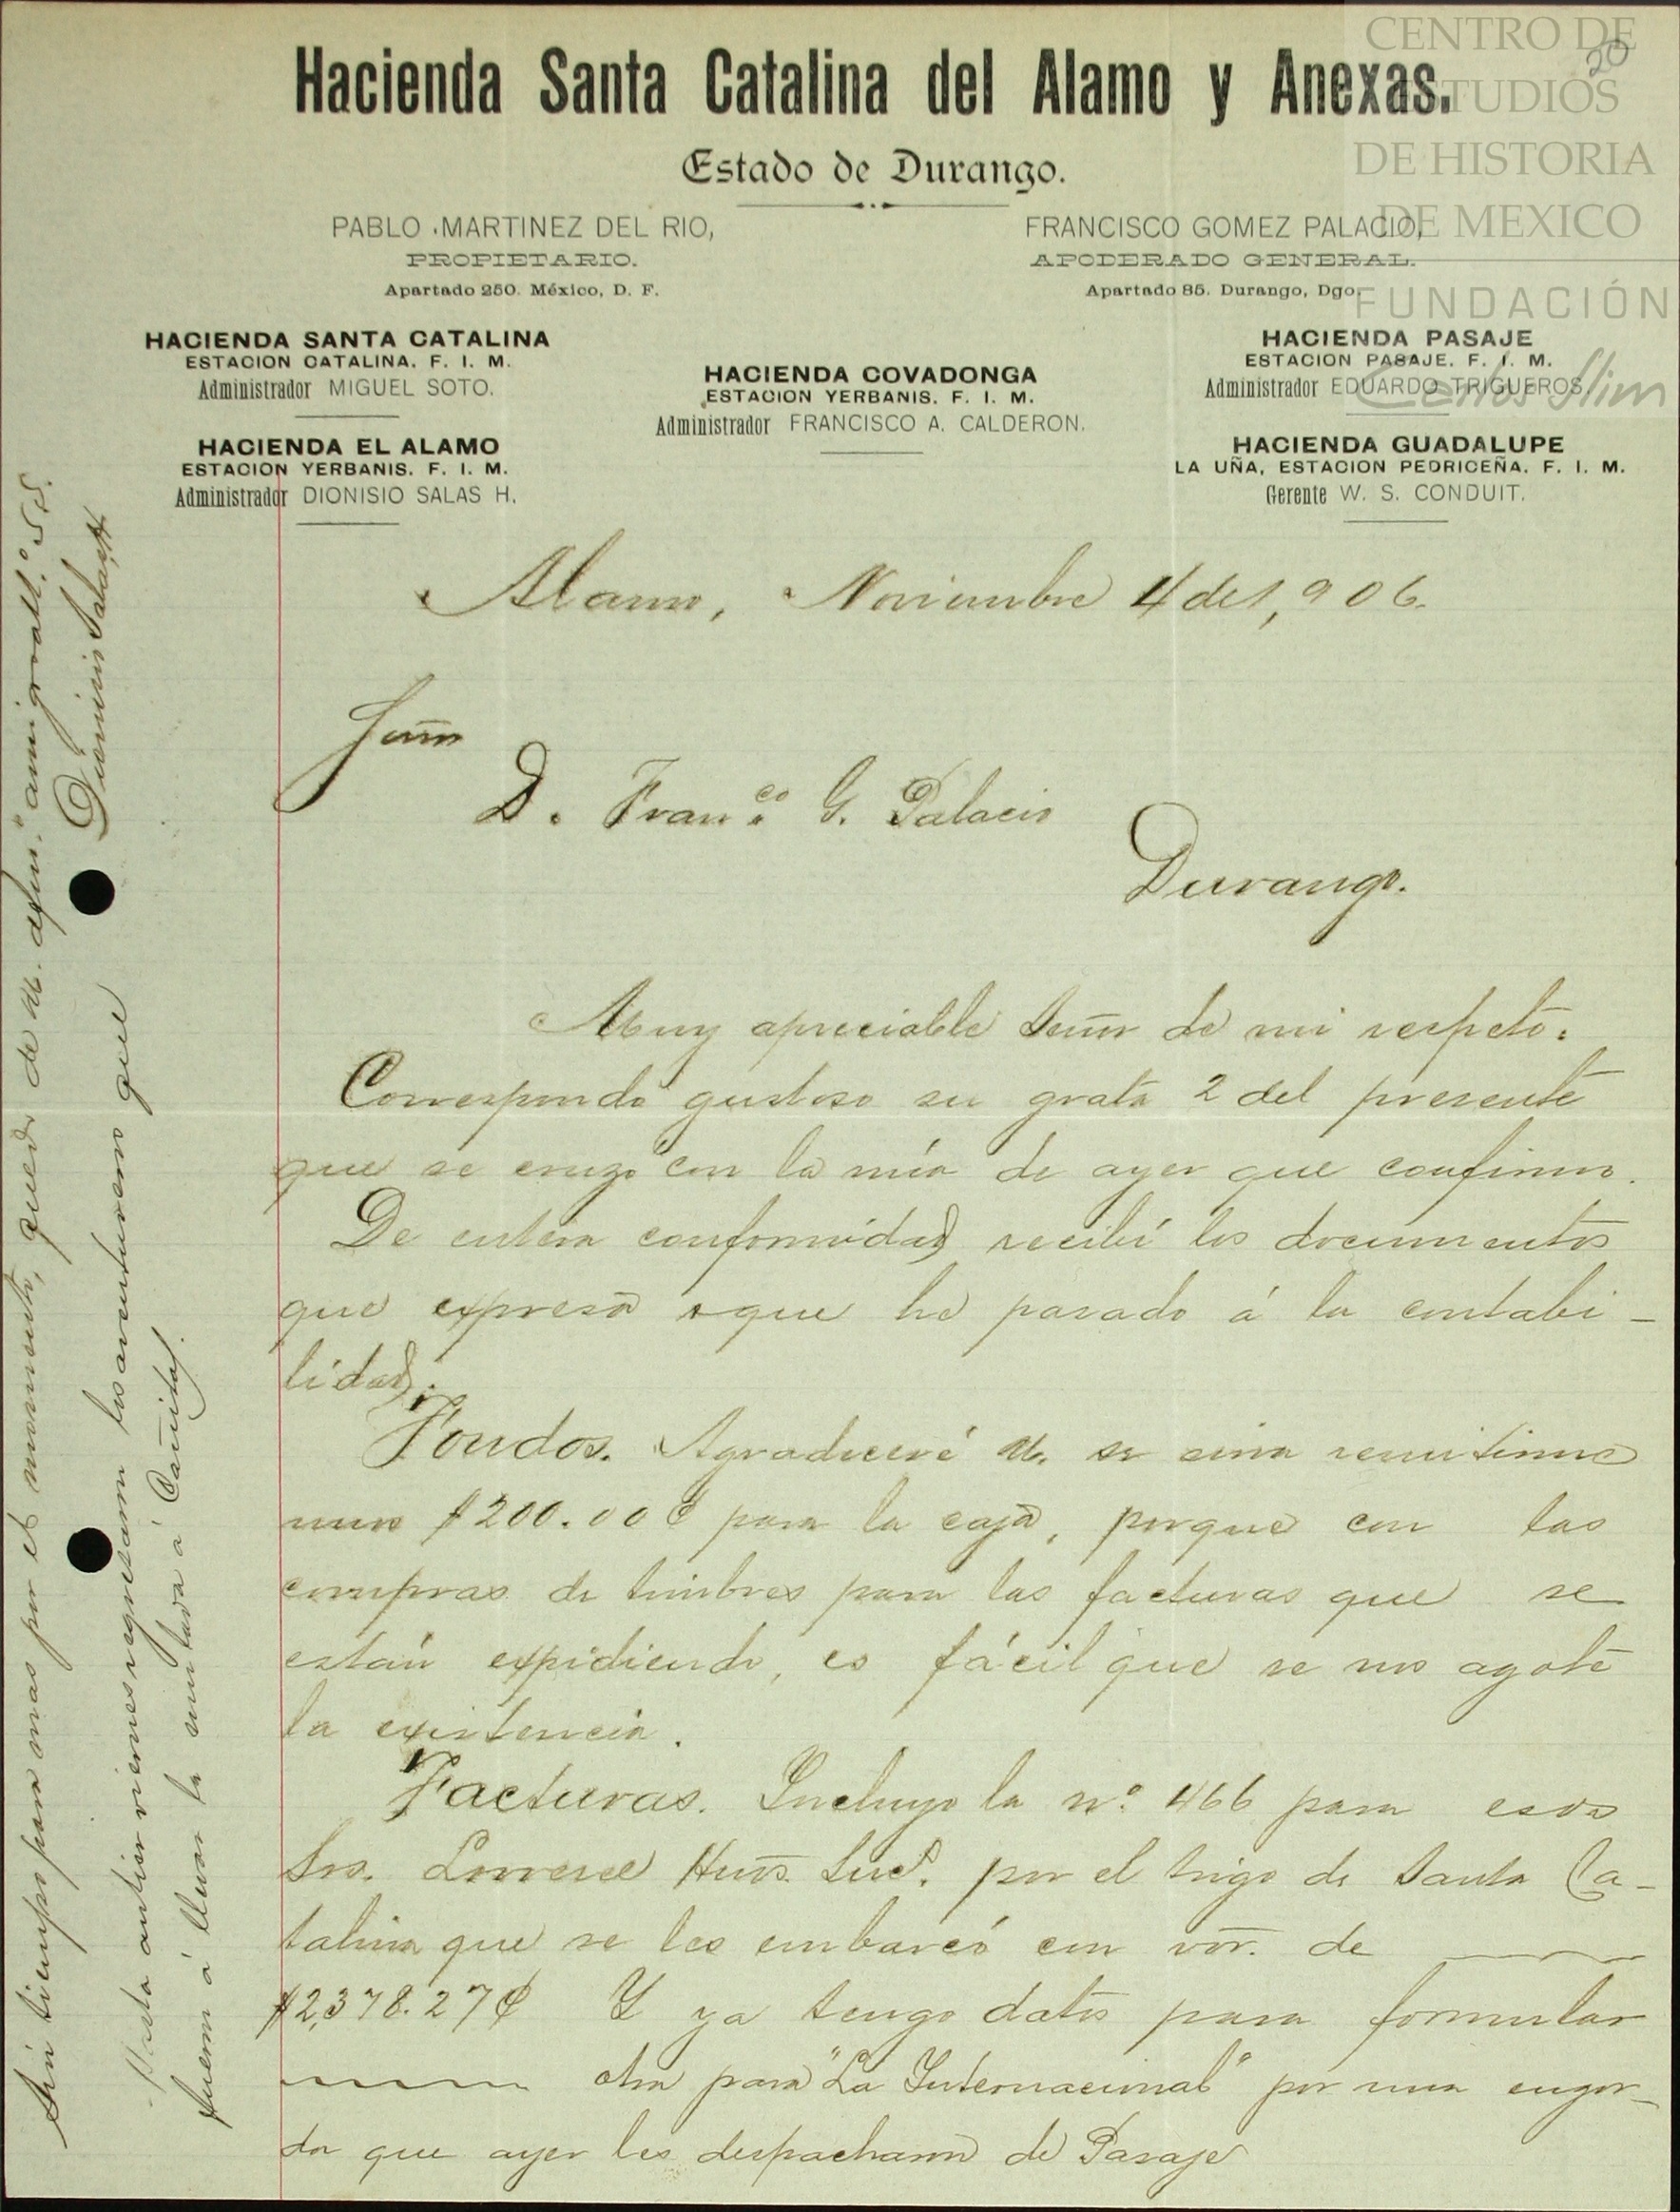 CENTRO DE
ESTUDIOS
DE HISTORIA
DE MEXICO
FUNDACIÓN
Carlos Slim
20
Hacienda Santa Catalina del Alamo y Anexas.
Estado de Durango.
PABLO MARTINEZ DEL RIO,
PROPIETARIO.
Apartado 250. México, D. F.
FRANCISCO GOMEZ PALACIO,
APODERADO GENERAL.
Apartado 85. Durango, Dgo.
HACIENDA SANTA CATALINA
ESTACION CATALINA. F. I. M.
Administrador MIGUEL SOTO.
HACIENDA EL ALAMO
ESTACION YERBANIS. F. I. M.
Administrador DIONISIO SALAS H.
HACIENDA COVADONGA
ESTACION YERBANIS. F. I. M.
Administrador FRANCISCO A. CALDERON.
HACIENDA PASAJE
ESTACION PASAJE. F. I. M.
Administrador EDUARDO TRIGUEROS.
HACIENDA GUADALUPE
LA UÑA, ESTACION PEDRICEÑA. F. I. M.
Gerente W. S. CONDUIT.
Alamo, Noviembre 4 de 1,906.
Señor
D. Franco. G. Palacio
Durango.
Muy apreciable Señor de mi respeto:
Correspondo gustoso su grata 2 del presente
que se cruzó con la mía de ayer que confirmo.
De entera conformidad recibí los documentos
que expresa y que he pasado á la contabi-
lidad.
Fondos. Agradeceré U. se sirva remitirme
unos $200.00¢ para la caja, porque con las
compras de timbres para las facturas que se
están expidiendo, es fácil que se nos agote
la existencia.
Facturas. Incluyo la no. 466 para esos
Srs. Hnos. Suc. por el trigo de Santa Ca-
talina que se les embarcó con vor. de
$2,378.27¢ Y ya tengo datos para formular
otra para "La Internacional" por una engor-
da que ayer les despacharon de Pasaje
Hasta antier viernes regresaron los aventureros que
fueron á llevar la mulada á Cañitas.
Sin tiempo para mas por el momento, quedo de U. afmo. amigo atto. S.S.
Dionisio Salas H.